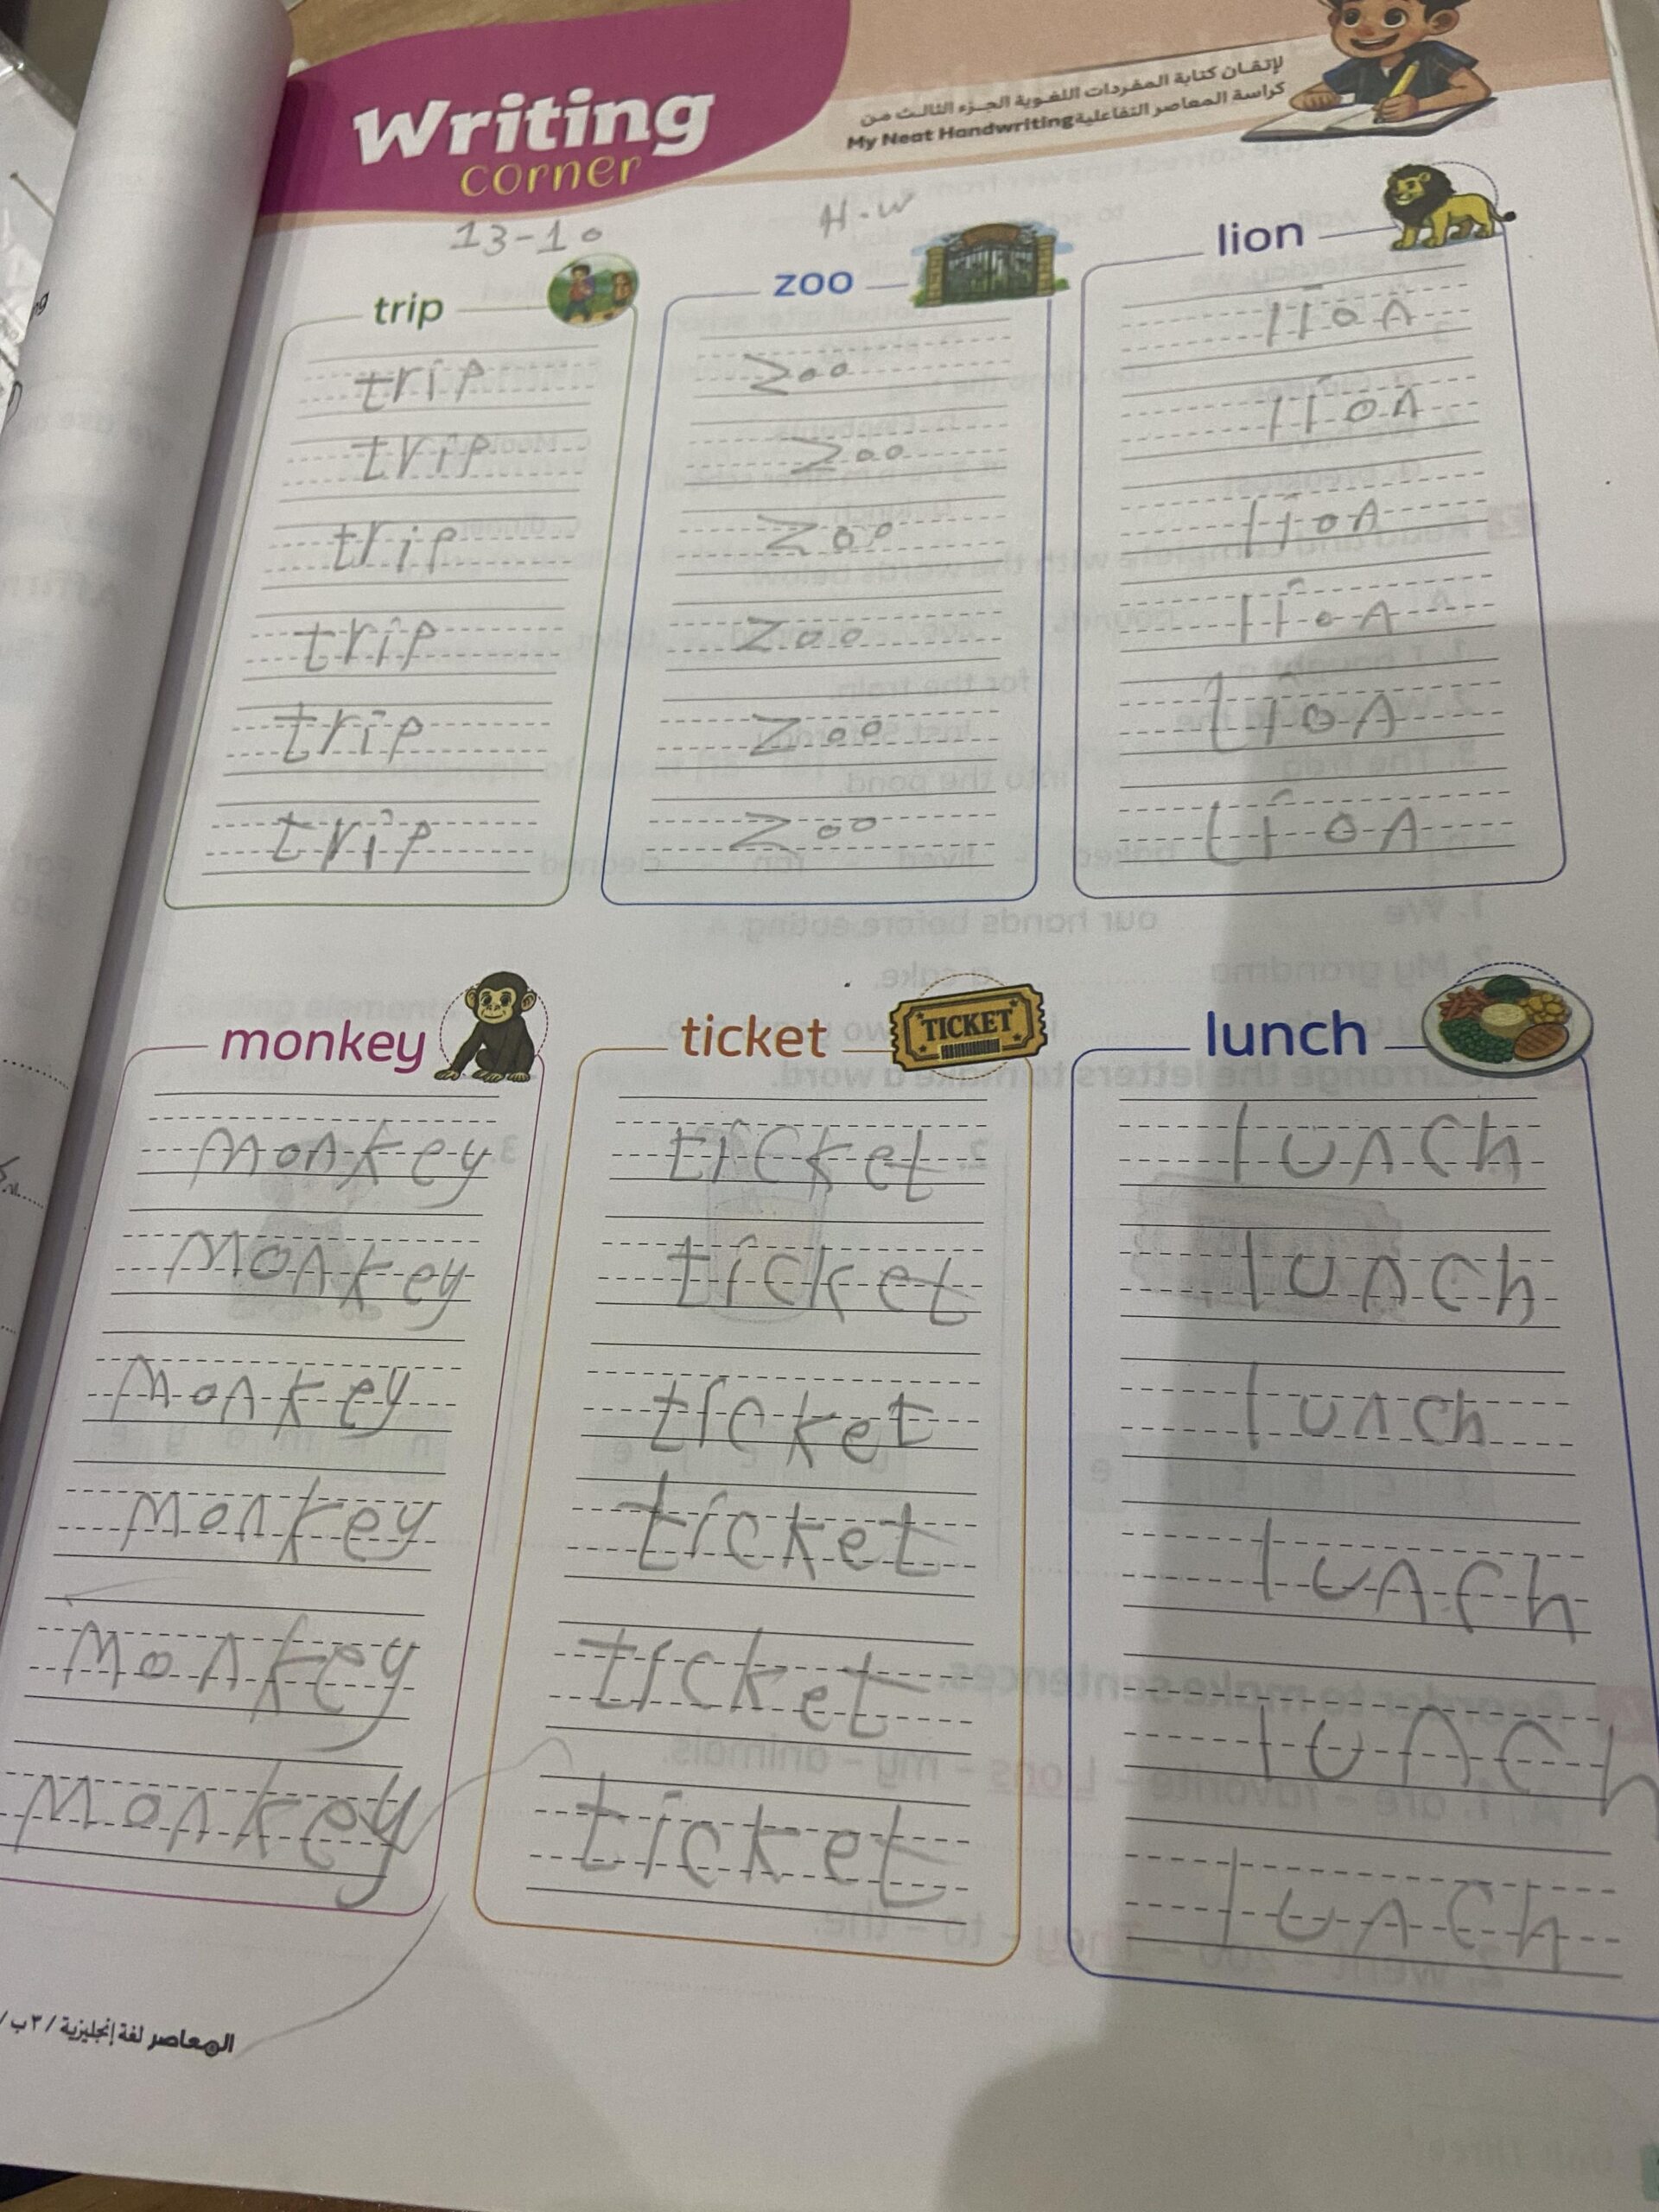 Writing
corner
لإتقان كتابة المفردات اللغوية الجزء الثالث من
كراسة المعاصر التفاعلية My Neat Handwriting
13-10
H.w
trip
trip
trip
trip
trip
trip
trip
zoo
zoo
zoo
zoo
zoo
zoo
zoo
lion
lion
lion
lion
lion
lion
lion
monkey
monkey
monkey
monkey
monkey
monkey
monkey
ticket
TICKET
ticket
ticket
ticket
ticket
ticket
ticket
lunch
lunch
lunch
lunch
lunch
lunch
lunch
المعاصر لغة إنجليزية / ٣ ب /